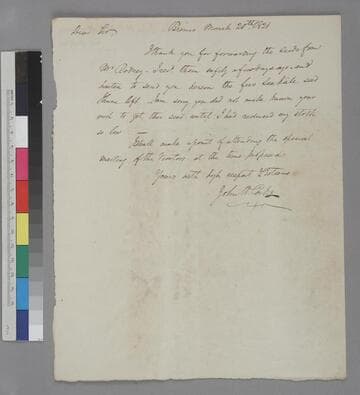 Dear Sir, Bremo March 20th 1821
I thank you for forwarding the seeds from
Mr Rodney. I recd them safely a few days ago and
hasten to send you herein the few Sea Kale seed
I have left. I am sorry you did not make known your
wish to get this seed until I had reduced my stock
so low —
I shall make a point of attending the special
meeting of the Visitors at the time proposed.
Yours with high respect & Esteem
John H Cocke